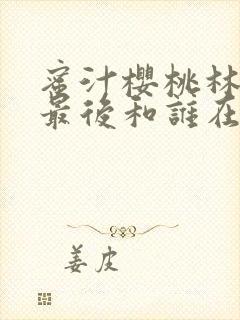 蜜汁櫻桃林
最後和誰在
姜皮